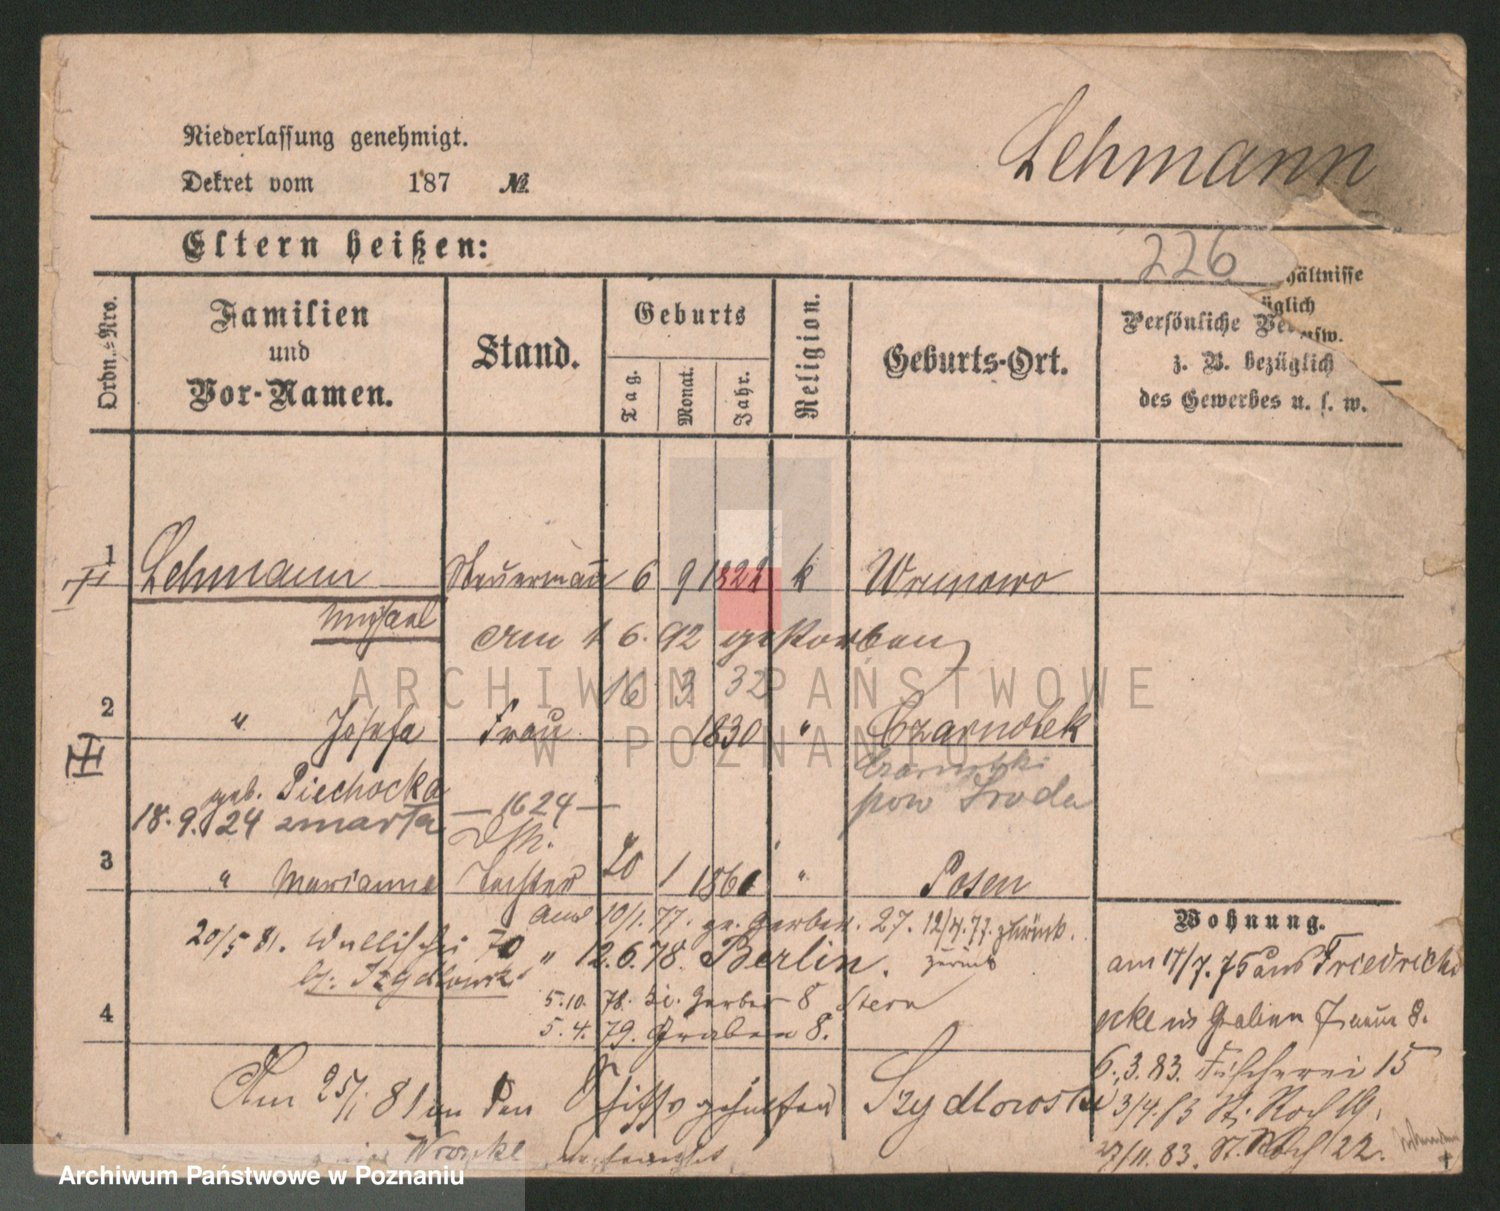 Niederlassung genehmigt.
Dekret vom 187 №
Lehmann
Eltern heißen:
226
hältnisse
üglich
usw.
Ordn.-Nro.
Familien
und
Vor-Namen.
Stand.
Geburts
Tag.
Monat.
Jahr.
Religion.
Geburts-Ort.
Persönliche Ve
z. B. bezüglich
des Gewerbes u. s. w.
1 Lehmann Steuermann 6 9 1822 k
am 1 6. 92 gestorben
16 3 32
2 " Josefa Frau 1830 " Czarnolek
geb. Piechocka
pow Środa
18. 9. 24 zmarła
— 1624 —
3 " Marianna Tochter 20 1 1861 " Posen
10/1. 77. gr. Gerber. 27. 12/4. 77. zurück.
20/5 81. Wallischei 70 " 12. 6. 78. Berlin. zurück
5. 10. 78. Gerber 8 Stern
4 5. 4. 79. Graben 8.
Am 25/1 81 an den Schiffsgehülfen Szydlowski
Wronke
Wohnung.
am 17/7. 75 aus Friedrichs
ecke n/s Graben 8.
6. 3. 83. Fischerei 15
3/4. 83 St. Roch 19.
27/11. 83. St. Roch 22.
ARCHIWUM PAŃSTWOWE
W POZNANIU
Archiwum Państwowe w Poznaniu